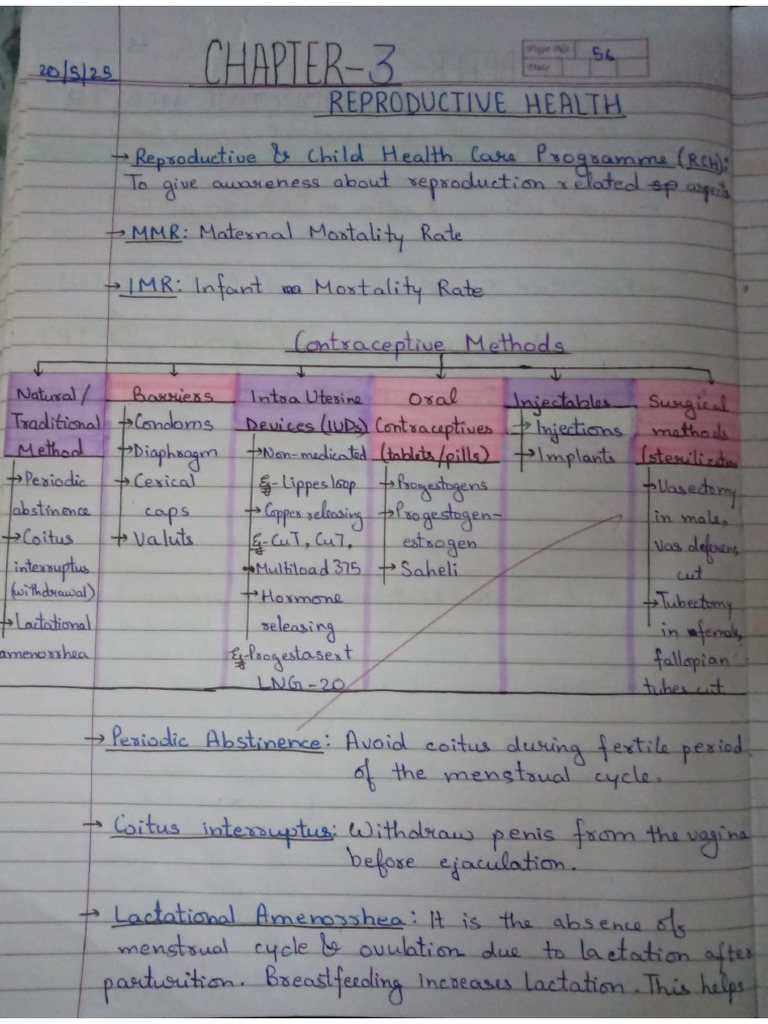 20/5/25
CHAPTER-3
Page No. 56
Date
REPRODUCTIVE HEALTH
→ Reproductive & Child Health Care Programme (RCH):
To give awareness about reproduction related aspects
→ MMR: Maternal Mortality Rate
→ IMR: Infant Mortality Rate
Contraceptive Methods
Natural/
Traditional
Method
→ Periodic
abstinence
→ Coitus
interruptus
(withdrawal)
→ Lactational
amenorrhea
Barriers
→ Condoms
→ Diaphragm
→ Cerical
caps
→ Valuts
Intra Uterine
Devices (IUDs)
→ Non-medicated
Eg- Lippes loop
→ Copper releasing
Eg- CuT, Cu7,
Multiload 375
→ Hormone
releasing
Eg- Progestasert
LNG-20
Oral
Contraceptives
(tablets/pills)
→ Progestogens
→ Progestogen-
estrogen
→ Saheli
Injectables
→ Injections
→ Implants
Surgical
methods
(sterilization
→ Vasectomy
in male,
vas deferens
cut
→ Tubectomy
in female,
fallopian
tubes cut
→ Periodic Abstinence: Avoid coitus during fertile period
of the menstrual cycle.
→ Coitus interruptus: Withdraw penis from the vagina
before ejaculation.
→ Lactational Amenorrhea: It is the absence of
menstrual cycle & ovulation due to lactation after
parturition. Breastfeeding increases lactation. This helps